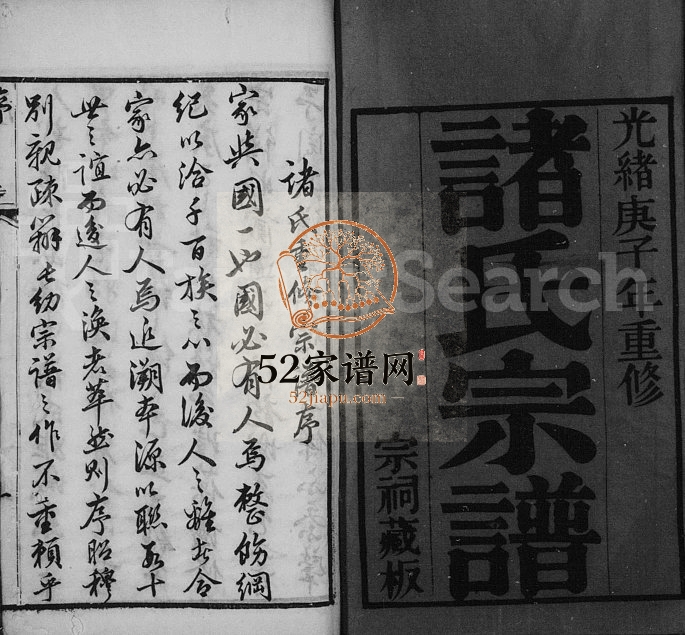 光緒庚子年重修
諸氏宗譜
宗祠藏板
諸氏重修宗譜序
家與國一也國必有人焉整飭綱
紀以洽千百族之心而後人之離者合
家亦必有人焉近溯本源以聯數十
世之誼而後人之渙者萃然則序昭穆
別親疎辨長幼宗譜之作不重賴乎
序
Search
52家谱网
52jiapu.com